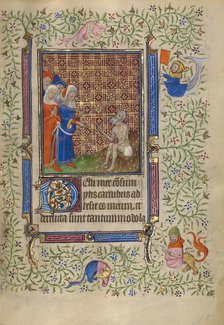 Pelli mee cõsum
ptis carnibus ad
hesit os meum. et
derelicta sunt tantummodo la